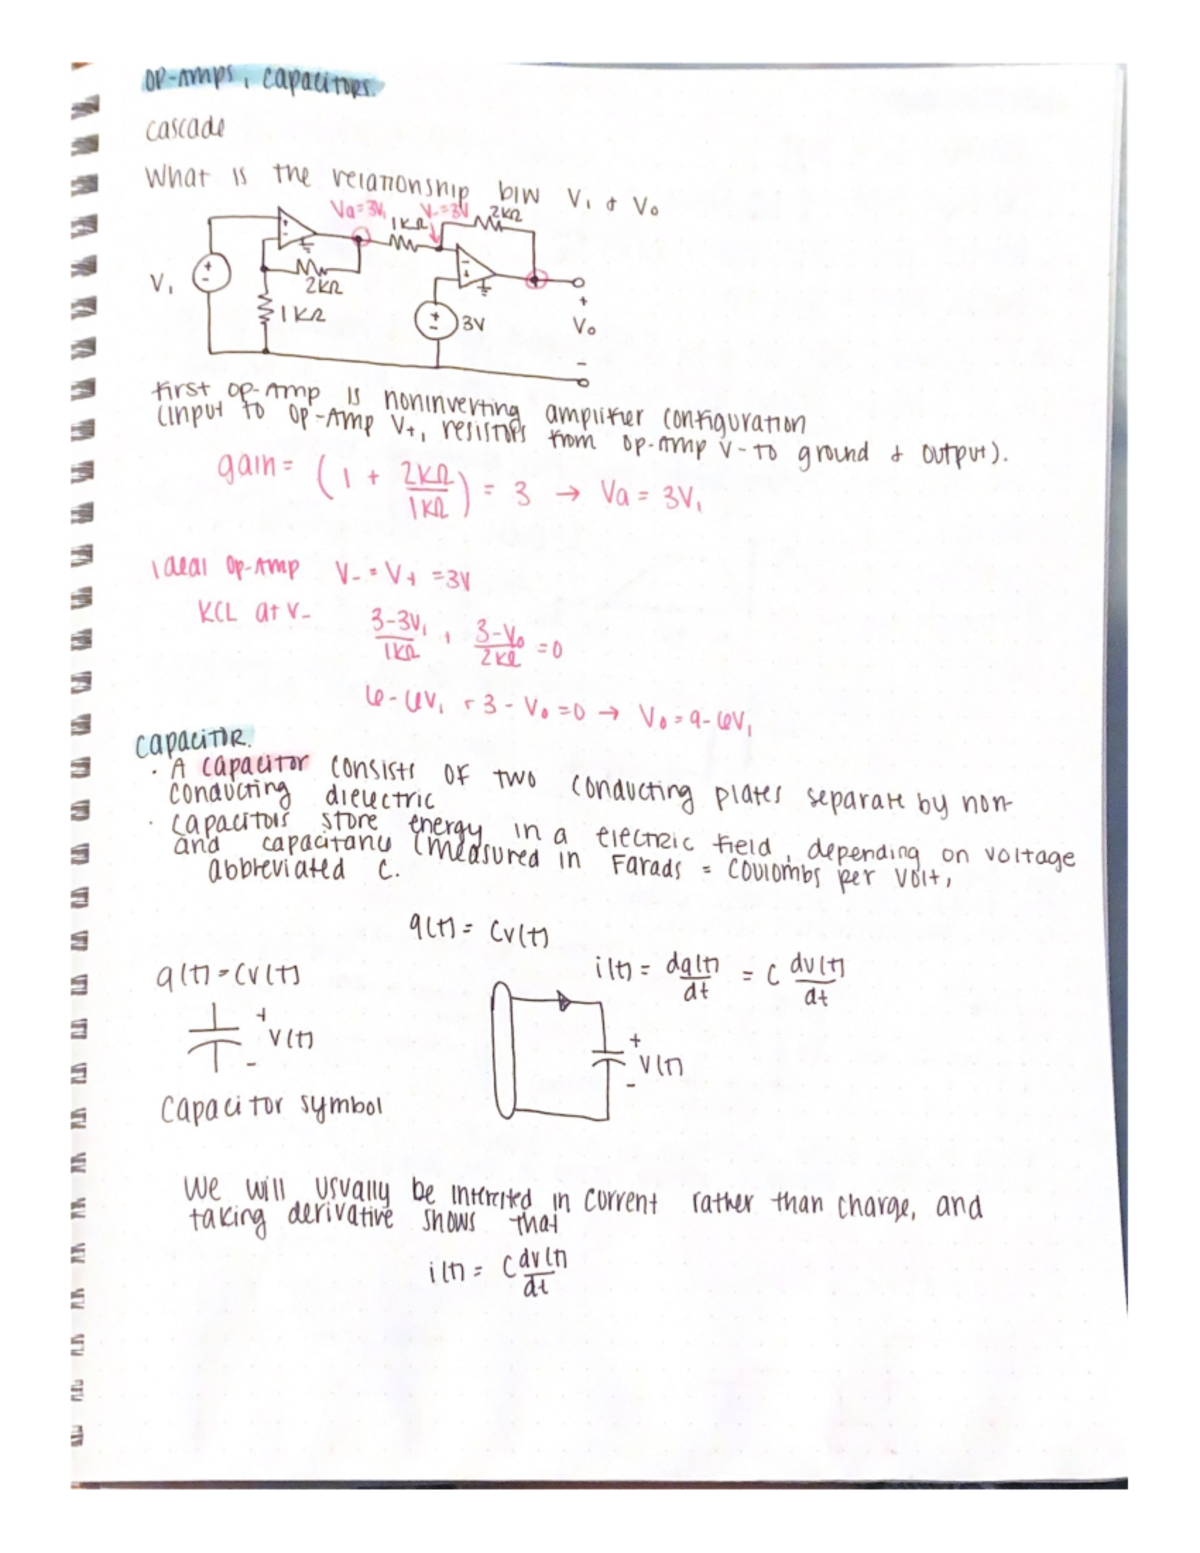 OP-Amps, Capacitors.
cascade
What is the relationship b/w V₁ & Vₒ
Va=3V₁ V₋=3V 2kΩ
1kΩ
V₁ + - + - 2kΩ - +
1kΩ + - 3V + Vₒ -
first op-Amp is noninverting amplifier configuration
(input to Op-Amp V+, resistors from op-amp V- to ground & output).
gain = (1 + 2kΩ/1kΩ) = 3 → Va = 3V₁
Ideal Op-Amp V₋ = V₊ = 3V
KCL at V₋ 3-3V₁/1kΩ + 3-Vₒ/2kΩ = 0
6-6V₁ + 3 - Vₒ = 0 → Vₒ = 9-6V₁
Capacitor.
· A capacitor consists of two conducting plates separate by non-
conducting dielectric
· capacitors store energy in a electric field, depending on voltage
and capacitance (measured in Farads = Coulombs per volt,
abbreviated C.
q(t) = Cv(t)
q(t) = Cv(t) i(t) = dq(t)/dt = C dv(t)/dt
+ v(t) -
+ v(t) -
Capacitor symbol
We will usually be interested in current rather than charge, and
taking derivative shows that
i(t) = C dv(t)/dt